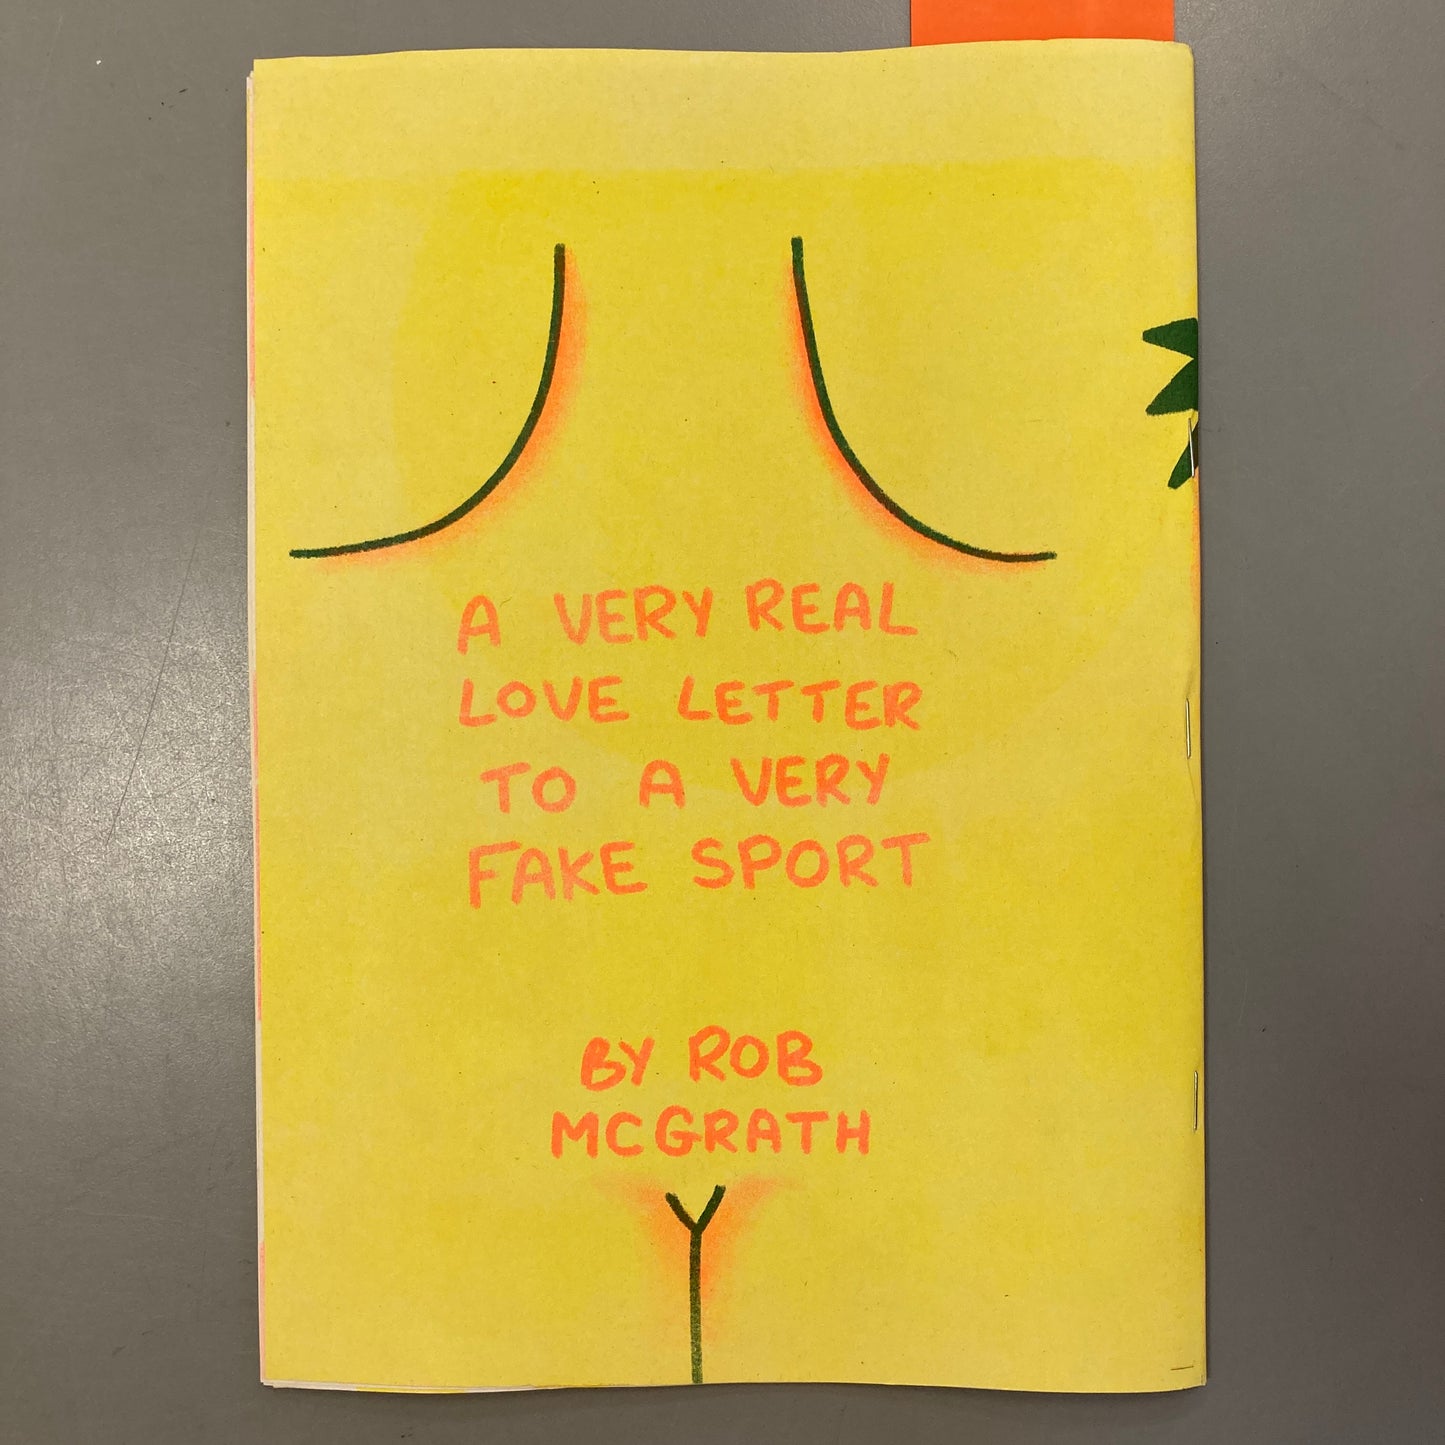 A VERY REAL
LOVE LETTER
TO A VERY
FAKE SPORT
BY ROB
MCGRATH